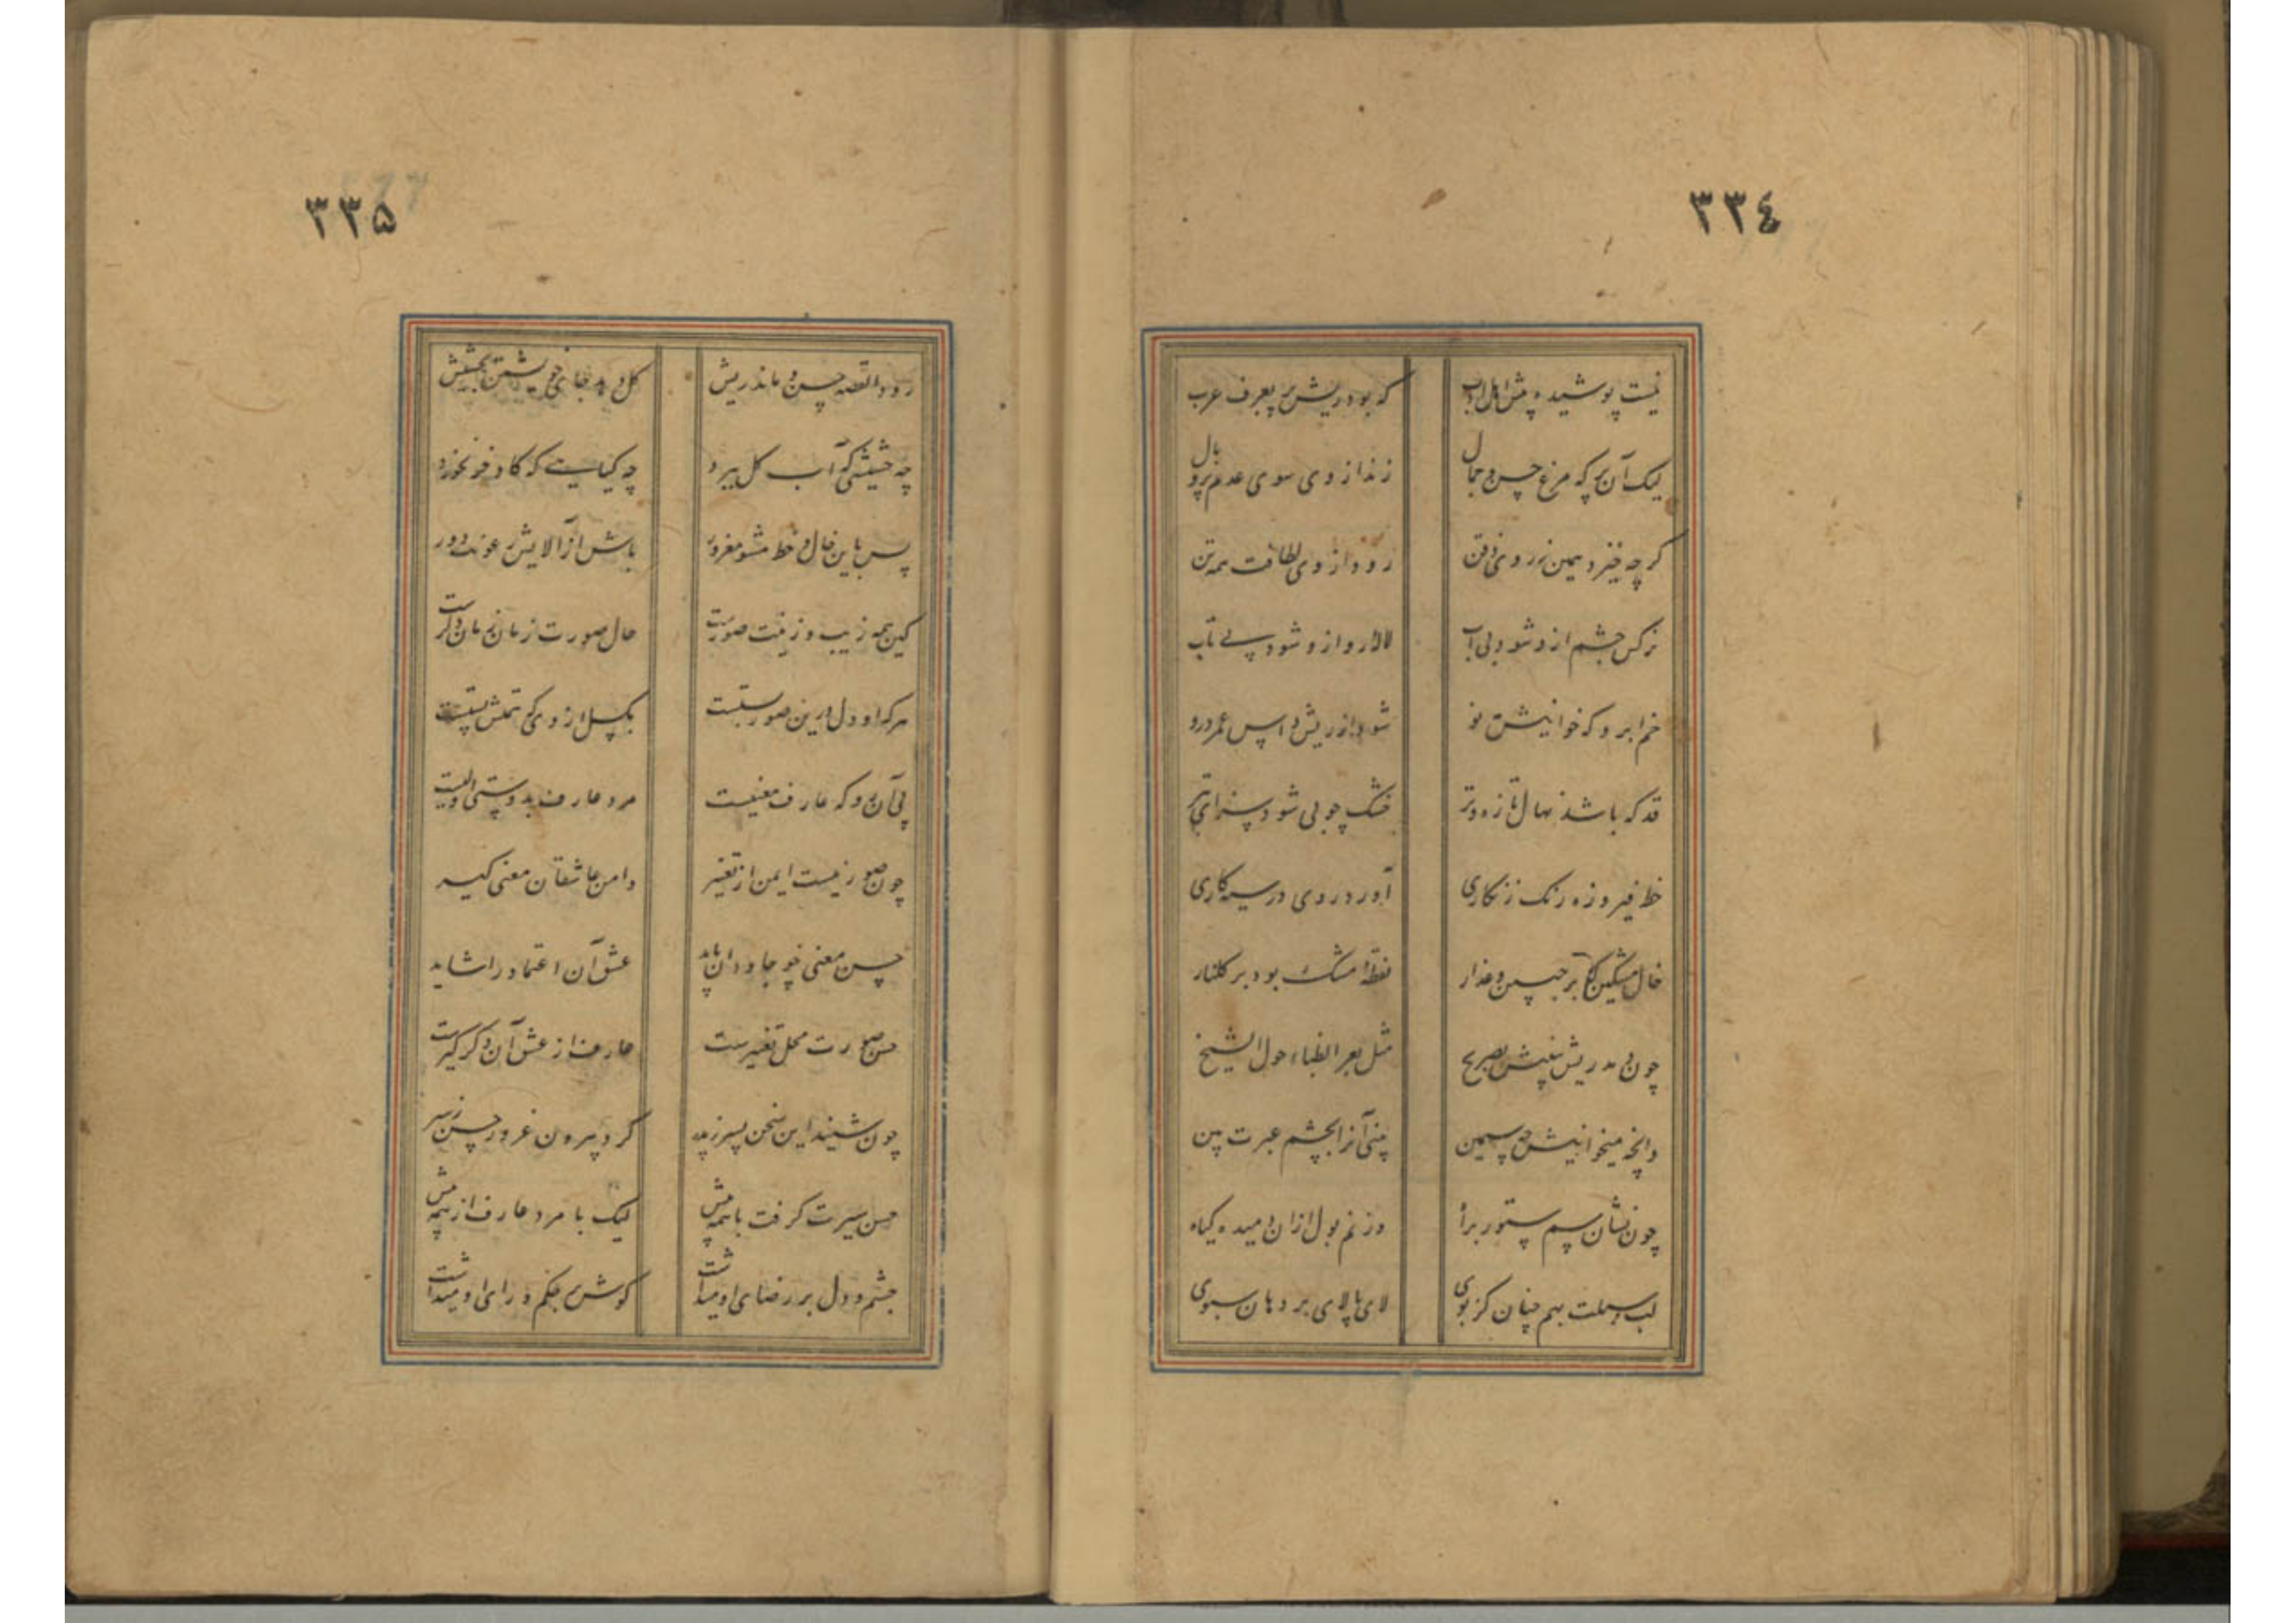 ٣٣٤
نیست پوشیده پیش اهل ادب که بود ریش پر بعرف عرب
لیک آن پر که مرغ حسن و جمال زند از وی سوی عدم پر و بال
کرچه خیزد همین ز روی ذقن رود از وی لطافت همه تن
نرکس چشم ازو شود بی آب لاله رو ازو شود بی تاب
خم ابرو که خوانیش مه نو شود از ریش داس عمر درو
قد که باشد نهال تازه و تر خشک چوبی شود سزای تبر
خط فیروزه رنک زنکاری آورد روی در سیه کاری
خال مشکین که بر جبین و عذار نقطهٔ مشک بود بر کلنار
چون دمد ریش بینیش بصریح مثل بعر الظباء حول الشیح
وانچه میخوانیش چه سیمین بینی آنرا بچشم عبرت بین
چون نشان سم ستور براه وز نم بول ازان دمیده کیاه
لب و سبلت بهم چنان کز بوی لای پالای بر دهان سبوی
٣٣٥
رود القصه حسن و ماند ریش کل دهد جای خویشتن بحشیش
چه حشیشی که آب کل ببرد چه کیاییست که کاو خر نخورد
پس باین خال و خط مشو مغرور باش از آلایش رعونت دور
کین همه زیب و زینت صورتست حال صورت زمان زمان دکرست
هرکه او دل درین صور بستست بکسل از وی که همتش پستست
پی آن رو که عارف معنیست مرد عارف بدوستی اولیست
چون صور نیست ایمن از تغییر دامن عاشقان معنی کیر
حسن معنی چو جاودان پاید عشق آن اعتماد را شاید
حسن صورت محل تغییرست عارف از عشق آن دکر کیرست
چون شنید این سخن پسر ز پدر کرد بیرون غرور حسن ز سر
حسن سیرت کرفت با همه پیش لیک با مرد عارف از همه بیش
چشم و دل بر رضای او میداشت کوش بر حکم و رای او میداشت